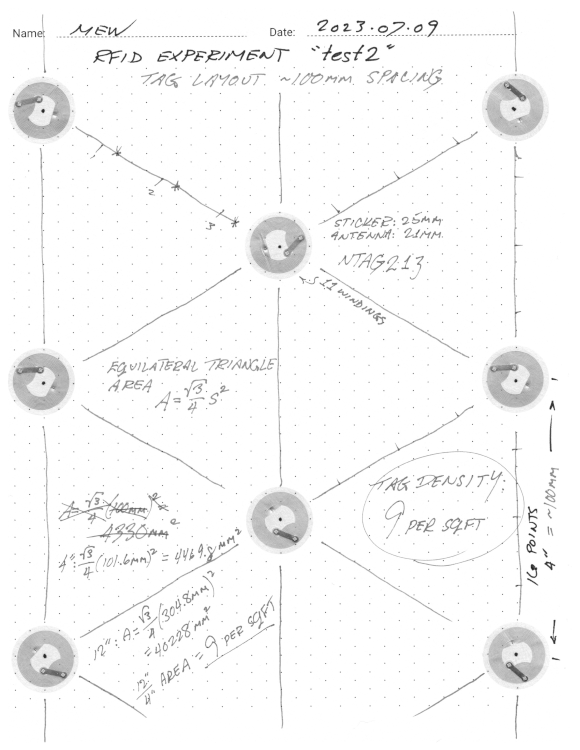 Name: MEW Date: 2023.07.09
RFID EXPERIMENT "test2"
TAG LAYOUT ~100MM SPACING
1
2
3
STICKER: 25MM
ANTENNA: 21MM
NTAG213
11 WINDINGS
EQUILATERAL TRIANGLE
AREA
A = √3/4 S²
TAG DENSITY:
9 PER SQFT
16 POINTS
4" = ~100MM
A = √3/4 (100mm)²
4330mm²
4": √3/4 (101.6mm)² = 4469.8 mm²
12": A = √3/4 (304.8mm)²
= 40228 mm²
12"/4" AREA = 9 PER SQFT